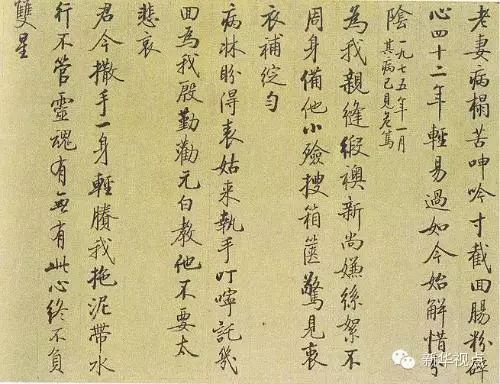 老妻病榻苦呻吟寸截回腸粉碎
心四十二年輕易過如今始解惜分
陰
一九七五年一月
其病已見危篤
為我親縫緞襖新尚嫌絲絮不
周身備他小殮搜箱篋驚見衷
衣補綻勻
病牀盼得表姑来執手叮嚀託幾
回為我殷勤勸元白教他不要太
悲哀
君今撒手一身輕賸我拖泥帶水
行不管靈魂有無有此心終不負
雙星
新华视点